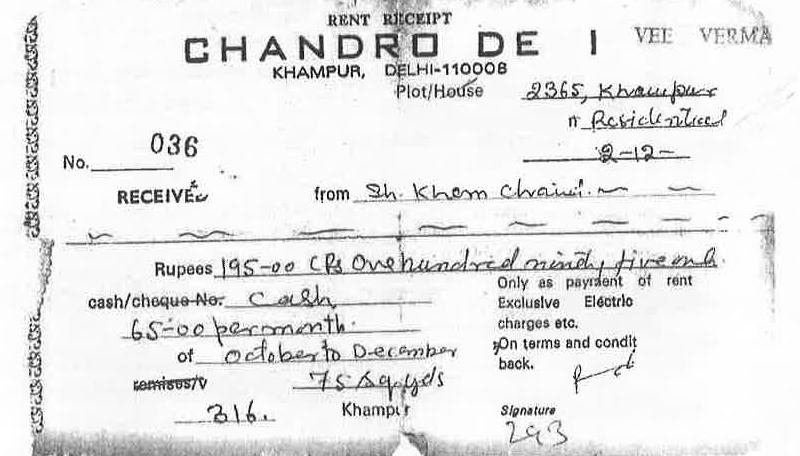 RENT RECEIPT
CHANDRO DE I VEE VERMA
KHAMPUR, DELHI-110008
Plot/House 2365, Khampur
Residential
2-12-
No. 036
RECEIVE from Sh. Khem Chand.
Rupees 195-00 (Rs One hundred nindy five only
cash/cheque No. Cash
Only as payment of rent
Exclusive Electric
charges etc.
65-00 per month.
On terms and condit
back.
of October to December
remises/v 75 Sq yds
316. Khampur
Signature
293